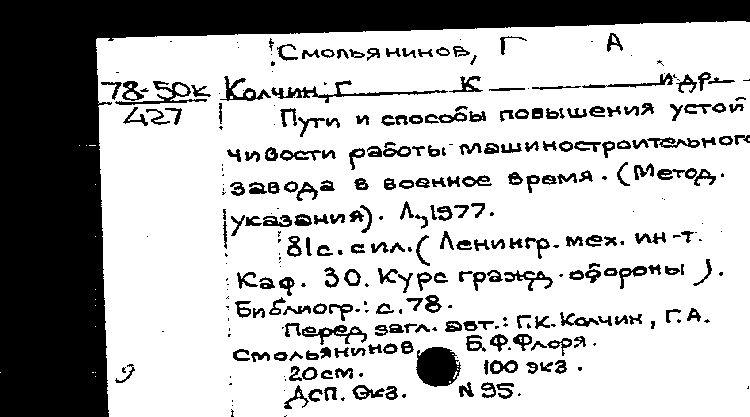 Смольянинов, Г А
78-50к Колчин, Г К и др.
427 Пути и способы повышения устой
чивости работы машиностроительного
завода в военное время. (Метод.
указания). Л., 1977.
81с. с ил. (Ленингр. мех. ин-т.
Каф. 30. Курс гражд. обороны).
Библиогр.: с. 78.
Перед загл. авт.: Г.К. Колчин, Г.А.
Смольянинов, Б.Ф. Флоря.
20 см. 100 экз.
ДСП. Экз. N 95.